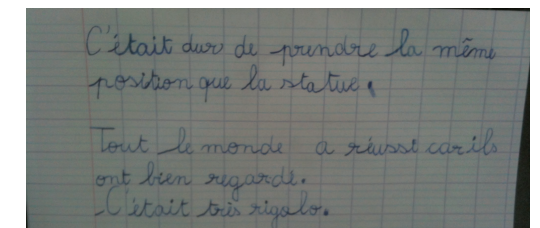 C'était dur de prendre la même
position que la statue.
Tout le monde a réussi car ils
ont bien regardé.
C'était très rigolo.